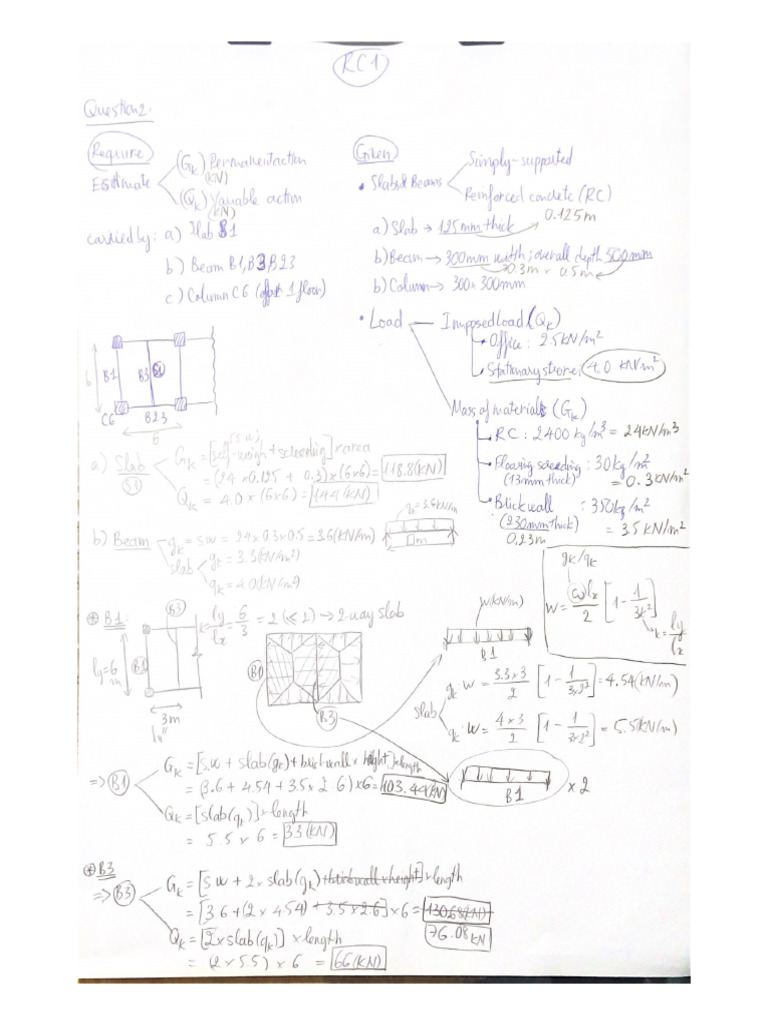 RC1
Question 2.
Require
Estimate
(Gk) Permanent action
(KN)
(Qk) Variable action
(KN)
carried by: a) Slab S1
b) Beam B1, B3, B23
c) Column C6 ( 1 floor)
Given
• Slabs & Beams
Simply-supported
Reinforced concrete (RC)
a) Slab → 125mm thick
0.125m
b) Beam → 300mm width; overall depth 500mm
0.3m x 0.5m
b) Column → 300x300mm
• Load — Imposed load (Qk)
Office: 2.5 KN/m²
Stationary store: 4.0 KN/m²
Mass of materials (Gk)
RC: 2400 kg/m³ = 24KN/m³
Flooring screeding: 30kg/m²
(13mm thick) = 0.3 KN/m²
Brick wall : 350kg/m²
(230mm thick) = 3.5 KN/m²
0.23m
6
B1
B3
S1
C6
B23
6
a) Slab
S1
(s.w)
Gk = [self-weigh + screeding] x area
= (24 x 0.125 + 0.3) x (6x6) = 118.8 (KN)
Qk = 4.0 x (6x6) = 144 (KN)
b) Beam
gk = sw = 24x0.3x0.5 = 3.6 (KN/m)
slab
gk = 3.3 (KN/m²)
qk = 4.0 (KN/m²)
gk = 3.6KN/m
gk/qk
W = ωlx/2 [1 - 1/3k²]
k = ly/lx
* B1:
B3
B1
ly = 6
m
3m
lx
k = ly/lx = 6/3 = 2 (≤ 2) → 2 way slab
B1
B3
W(KN/m)
B1
slab
gk: W = 3.3 x 3/2 [1 - 1/3x2²] = 4.54 (KN/m)
qk: W = 4 x 3/2 [1 - 1/3x2²] = 5.5 (KN/m)
=> B1
Gk = [s.w + slab(gk) + brick wall x height] x length
= (3.6 + 4.54 + 3.5 x 2.6) x 6 = 103.44 (KN)
Qk = [slab(qk)] x length
= 5.5 x 6 = 33 (KN)
B1
x 2
* B3
=> B3
Gk = [s.w + 2 x slab(gk) + brick wall x height] x length
= [3.6 + (2 x 4.54) + 3.5 x 2.6] x 6 = 130.68 (KN)
76.08 KN
Qk = [2 x slab(qk)] x length
= (2 x 5.5) x 6 = 66 (KN)